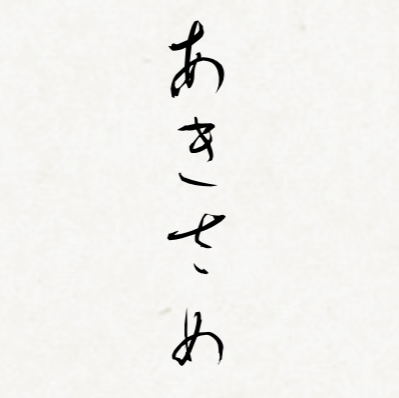 あきさめ